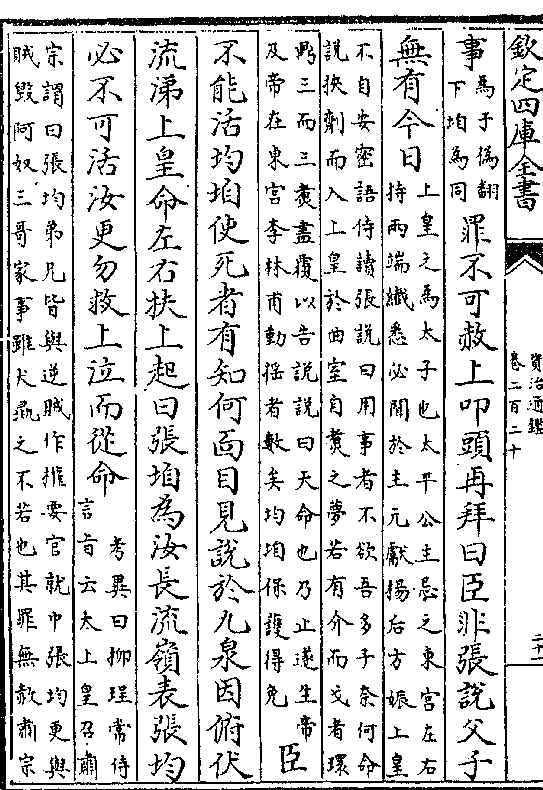 欽定四庫全書
資治通鑑
卷二百二十
二十一
事
為于偽翻
下垍為同
罪不可赦上叩頭再拜曰臣非張說父子
無有今日
上皇之為太子也太平公主忌之東宮左右
持兩端纎悉必聞於主元獻楊后方娠上皇
不自安密語侍讀張說曰用事者不欲吾多子奈何命
說挾劑而入上皇於曲室自煑之夢若有介而戈者環
鼎三而三煑盡覆以告說說曰天命也乃止遂生帝
及帝在東宮李林甫動搖者數矣均垍保護得免
臣
不能活均垍使死者有知何面目見說於九泉因俯伏
流涕上皇命左右扶上起曰張垍為汝長流嶺表張均
必不可活汝更勿救上泣而從命
考異曰柳珵常侍
言旨云太上皇召肅
宗謂曰張均弟兄皆與逆賊作權要官就中張均更與
賊毁阿奴三哥家事雖犬彘之不若也其罪無赦肅宗